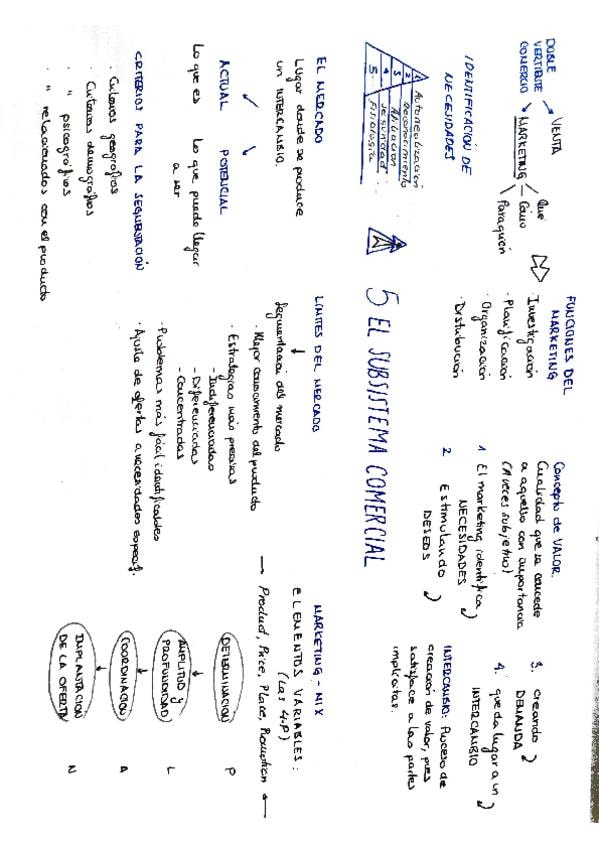 DOBLE
VERTIENTE
COMERCIO
VENTA
MARKETING
Qué
Cómo
Para quién
FUNCIONES DEL
MARKETING
· Investigación
· Planificación
· Organización
· Distribución
Concepto de VALOR.
Cualidad que se concede
a aquello con importancia
(A veces subjetivo)
1 El marketing identifica
NECESIDADES
2 Estimulando
DESEOS
3. creando
DEMANDA
4. que da lugar a un
INTERCAMBIO
INTERCAMBIO: Proceso de
creación de valor, pues
satisface a las partes
implicadas.
IDENTIFICACIÓN DE
NECESIDADES
1 Autorrealización
2 Reconocimiento
3 Afiliación
4 Seguridad
5 Fisiología
5 EL SUBSISTEMA COMERCIAL
EL MERCADO
Lugar donde se produce
un INTERCAMBIO.
ACTUAL
Lo que es
POTENCIAL
Lo que puede llegar
a ser
CRITERIOS PARA LA SEGMENTACIÓN
· Criterios geográficos
· Criterios demográficos
· " psicográficos
· " relacionados con el producto
LÍMITES DEL MERCADO
Segmentación del mercado
· Mejor conocimiento del producto
· Estrategias más precisas
- Indiferenciadas
- Diferenciadas
- Concentradas
· Problemas más fácil identificables
· Ajuste de ofertas a necesidades específ.
MARKETING - MIX
ELEMENTOS VARIABLES:
(Las 4·P)
Product, Price, Place, Promotion
DETERMINACIÓN P
AMPLITUD y
PROFUNDIDAD L
COORDINACIÓN A
IMPLANTACIÓN
DE LA OFERTA N